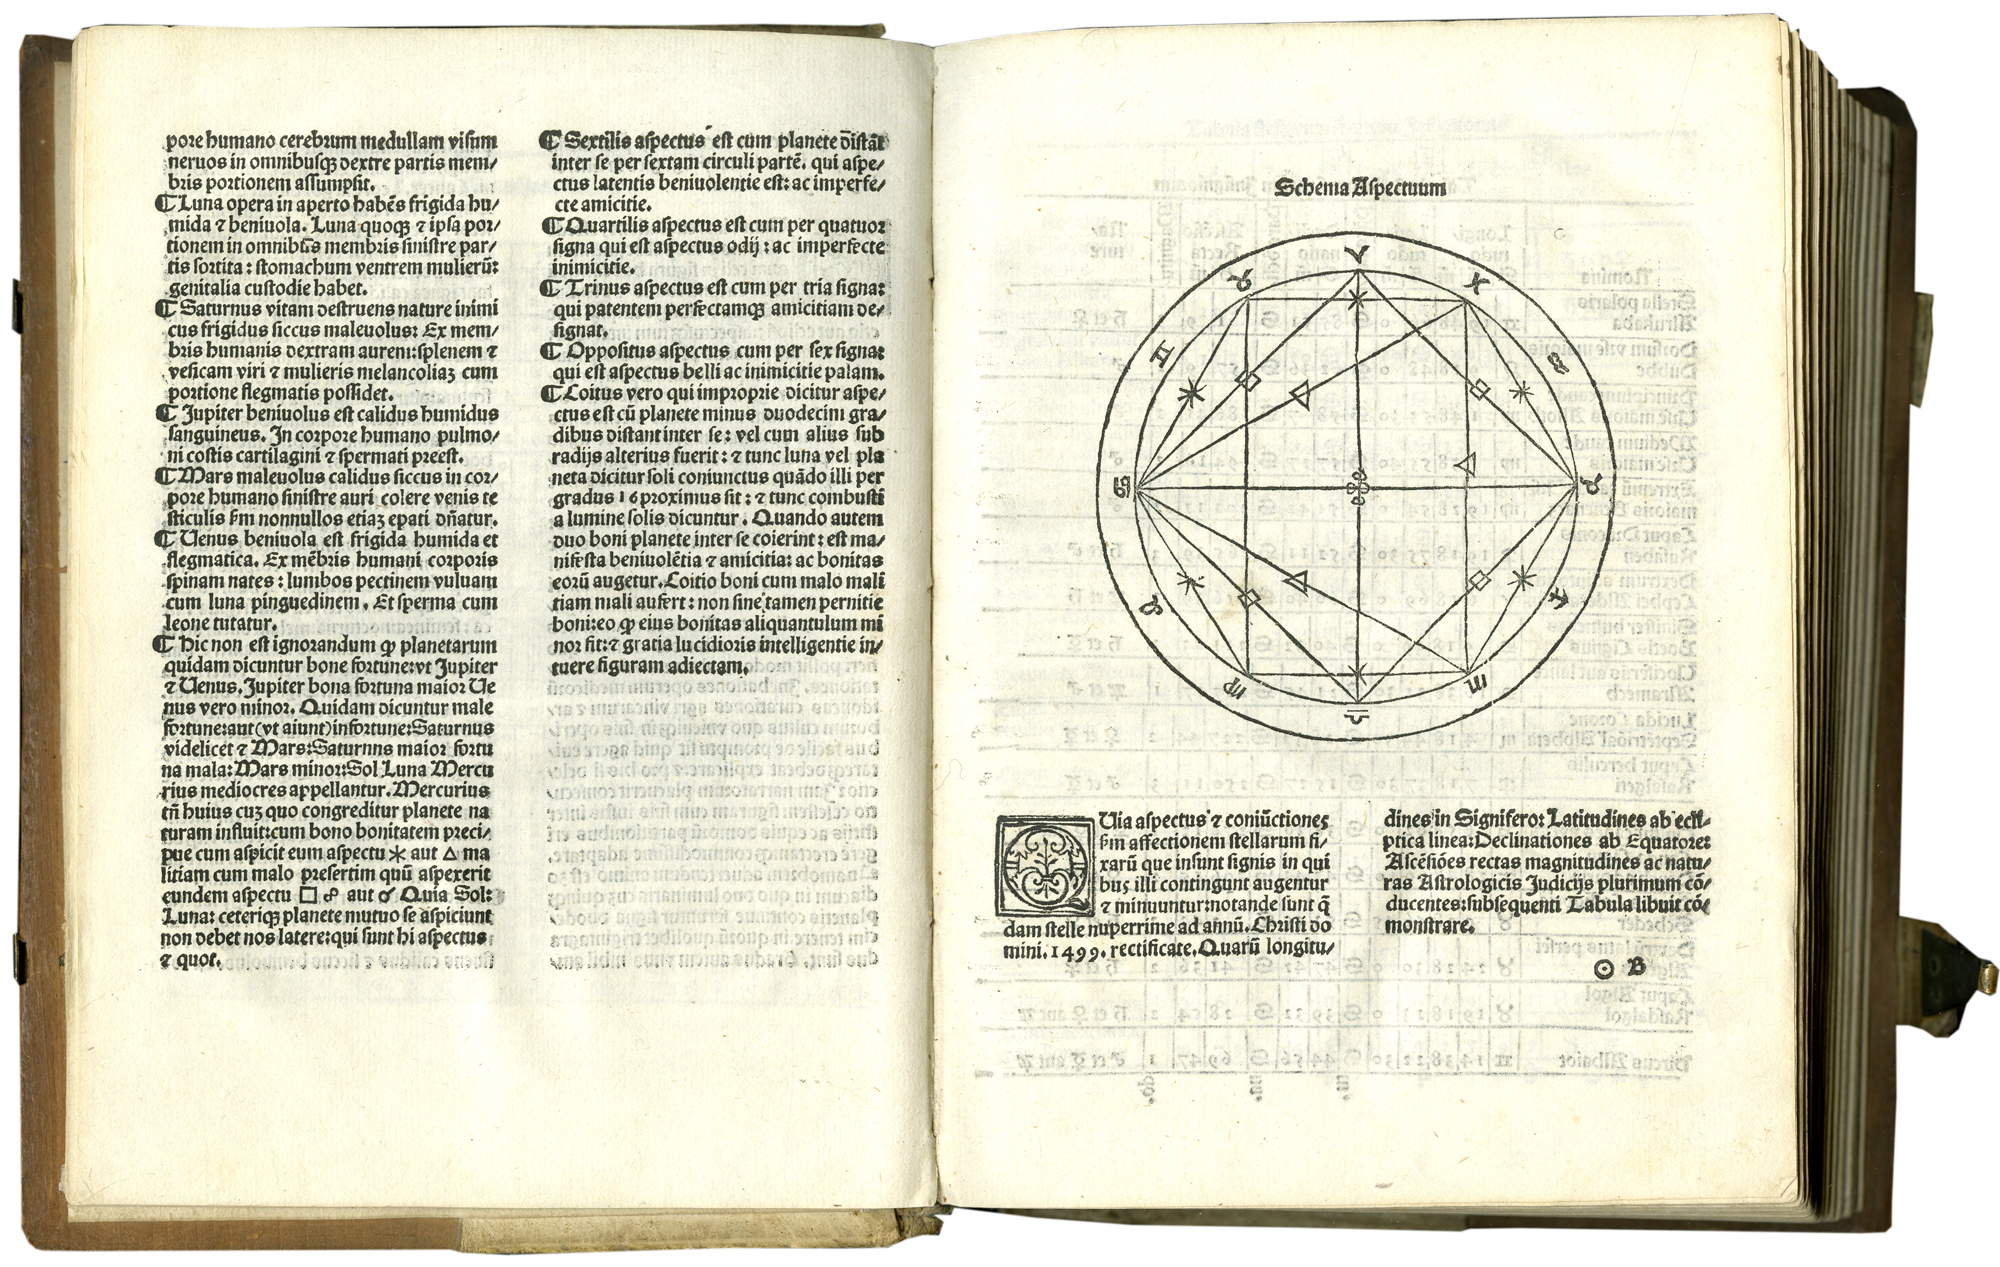 pore humano cerebrum medullam visum
neruos in omnibusqȝ dextre partis mem/
bris portionem assumpsit.
¶ Luna opera in aperto habēs frigida hu/
mida ⁊ beniuola. Luna quoqȝ ⁊ ipsa por/
tionem in omnibꝰ membris sinistre par/
tis sortita: stomachum ventrem mulierū:
genitalia custodie habet.
¶ Saturnus vitam destruens nature inimi
cus frigidus siccus maleuolus: Ex mem/
bris humanis dextram aurem: splenem ⁊
vesicam viri ⁊ mulieris melancoliaȝ cum
portione flegmatis possidet.
¶ Jupiter beniuolus est calidus humidus
sanguineus. In corpore humano pulmo/
ni costis cartilagini ⁊ spermati preest.
¶ Mars maleuolus calidus siccus in cor/
pore humano sinistre auri colere venis te
sticulis ẜm nonnullos etiaȝ epati dn̄atur.
¶ Uenus beniuola est frigida humida et
flegmatica. Ex mēbris humani corporis
spinam nates: lumbos pectinem vuluam
cum luna pinguedinem. Et sperma cum
leone tutatur.
¶ Hic non est ignorandum ꝙ planetarum
quidam dicuntur bone fortune: vt Jupiter
⁊ Uenus. Jupiter bona fortuna maior Ue
nus vero minor. Quidam dicuntur male
fortune: aut (vt aiunt) infortune: Saturnus
videlicet ⁊ Mars: Saturnns maior fortu
na mala: Mars minor: Sol Luna Mercu
rius mediocres appellantur. Mercurius
tn̄ huius cuȝ quo congreditur planete na
turam influit: cum bono bonitatem preci/
pue cum aspicit eum aspectu ⚹ aut △ ma
litiam cum malo presertim quū aspexerit
eundem aspectu □ ☍ aut ☌ Quia Sol:
Luna: ceteriqȝ planete mutuo se aspiciunt
non debet nos latere: qui sunt hi aspectus
⁊ quot.
¶ Sextilis aspectus est cum planete distāt
inter se per sextam circuli partē. qui aspe/
ctus latentis beniuolentie est: ac imperfe/
cte amicitie.
¶ Quartilis aspectus est cum per quatuor
signa qui est aspectus odij: ac imperfecte
inimicitie.
¶ Trinus aspectus est cum per tria signa:
qui patentem perfectamqȝ amicitiam de/
signat.
¶ Oppositus aspectus cum per sex signa:
qui est aspectus belli ac inimicitie palam.
¶ Coitus vero qui improprie dicitur aspe/
ctus est cū planete minus duodecim gra/
dibus distant inter se: vel cum alius sub
radijs alterius fuerit: ⁊ tunc luna vel pla
neta dicitur soli coniunctus quādo illi per
gradus 16 proximus sit: ⁊ tunc combusti
a lumine solis dicuntur. Quando autem
duo boni planete inter se coierint: est ma/
nifesta beniuolētia ⁊ amicitia: ac bonitas
eorū augetur. Coitio boni cum malo mali
tiam mali aufert: non sine tamen pernitie
boni: eo ꝙ eius bonitas aliquantulum mi
nor fit: ⁊ gratia lucidioris intelligentie in/
tuere figuram adiectam.
Schema Aspectuum
♈
♉ ♓
♊ ♒
♋ ♑
♌ ♐
♍ ♏
♎
QUia aspectus ⁊ coniūctiones
ẜm affectionem stellarum fi/
xarū que insunt signis in qui
bus illi contingunt augentur
⁊ minuuntur: notande sunt q̄
dam stelle nuperrime ad annū. Christi do
mini. 1499. rectificate. Quarū longitu/
dines in Signifero: Latitudines ab ecli/
ptica linea: Declinationes ab Equatore:
Ascēsiōes rectas magnitudines ac natu/
ras Astrologicis Judicijs plurimum cō/
ducentes: subsequenti Tabula libuit cō/
monstrare.
☉ B